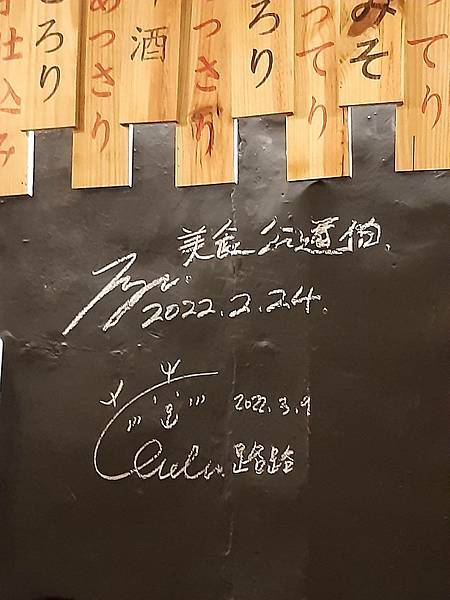 仕込み
ろり
あっさり
酒
っさり
ろり
ってり
みそ
ってり
美食
2022.2.24.
2022.3.9
Lulu.路路